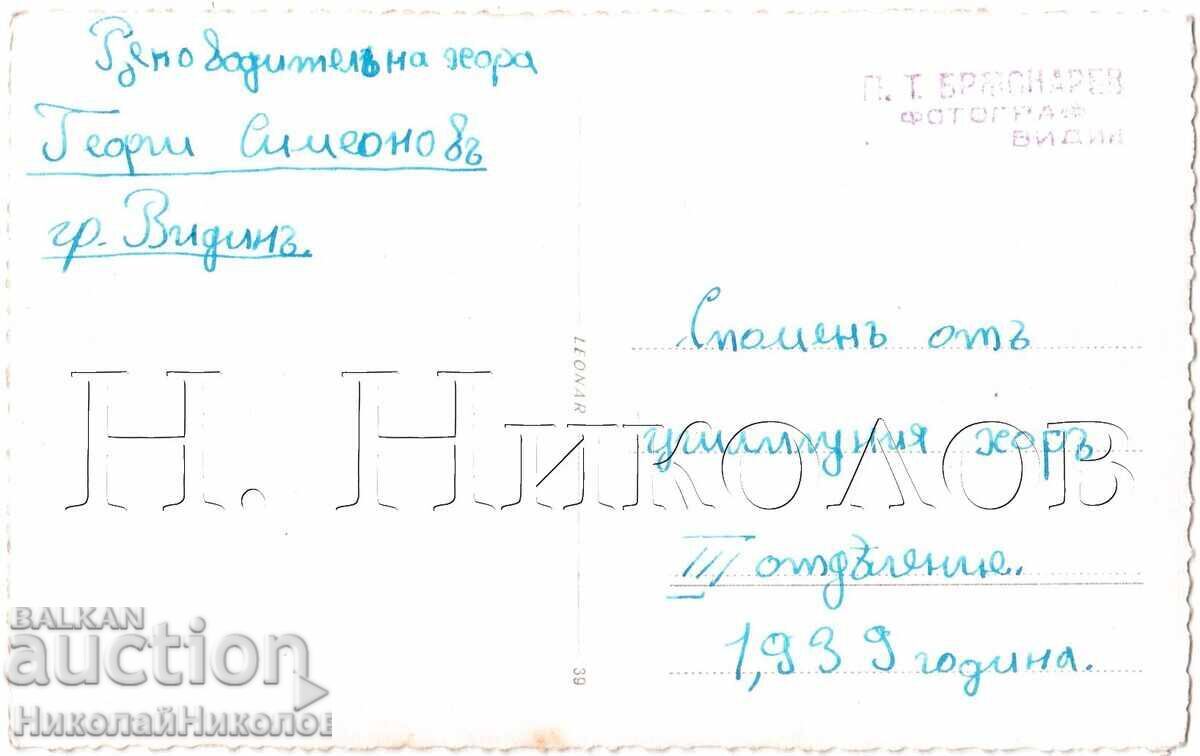 Геноводитель на хора
Георги Симеоновъ
гр. Видинъ.
П. Т.
ФОТОГРАФ
ВИДИН
Споменъ отъ
хоръ
III отдѣление.
1,939 година.
LEONAR
39
Н. Николов
BALKAN
auction
НиколайНиколов